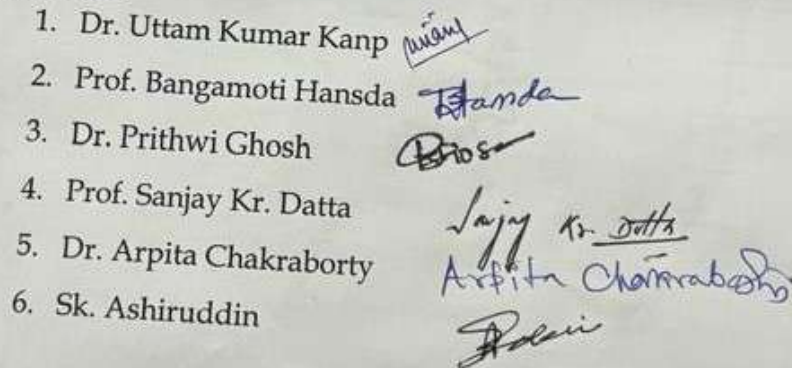 1. Dr. Uttam Kumar Kanp
2. Prof. Bangamoti Hansda Hansda
3. Dr. Prithwi Ghosh
4. Prof. Sanjay Kr. Datta Sanjay Kr. Datta
5. Dr. Arpita Chakraborty Arpita Chakraborty
6. Sk. Ashiruddin